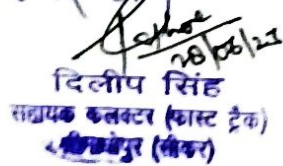 28/06/23
दिलीप सिंह
सहायक कलक्टर (फास्ट ट्रैक)
(सीकर)